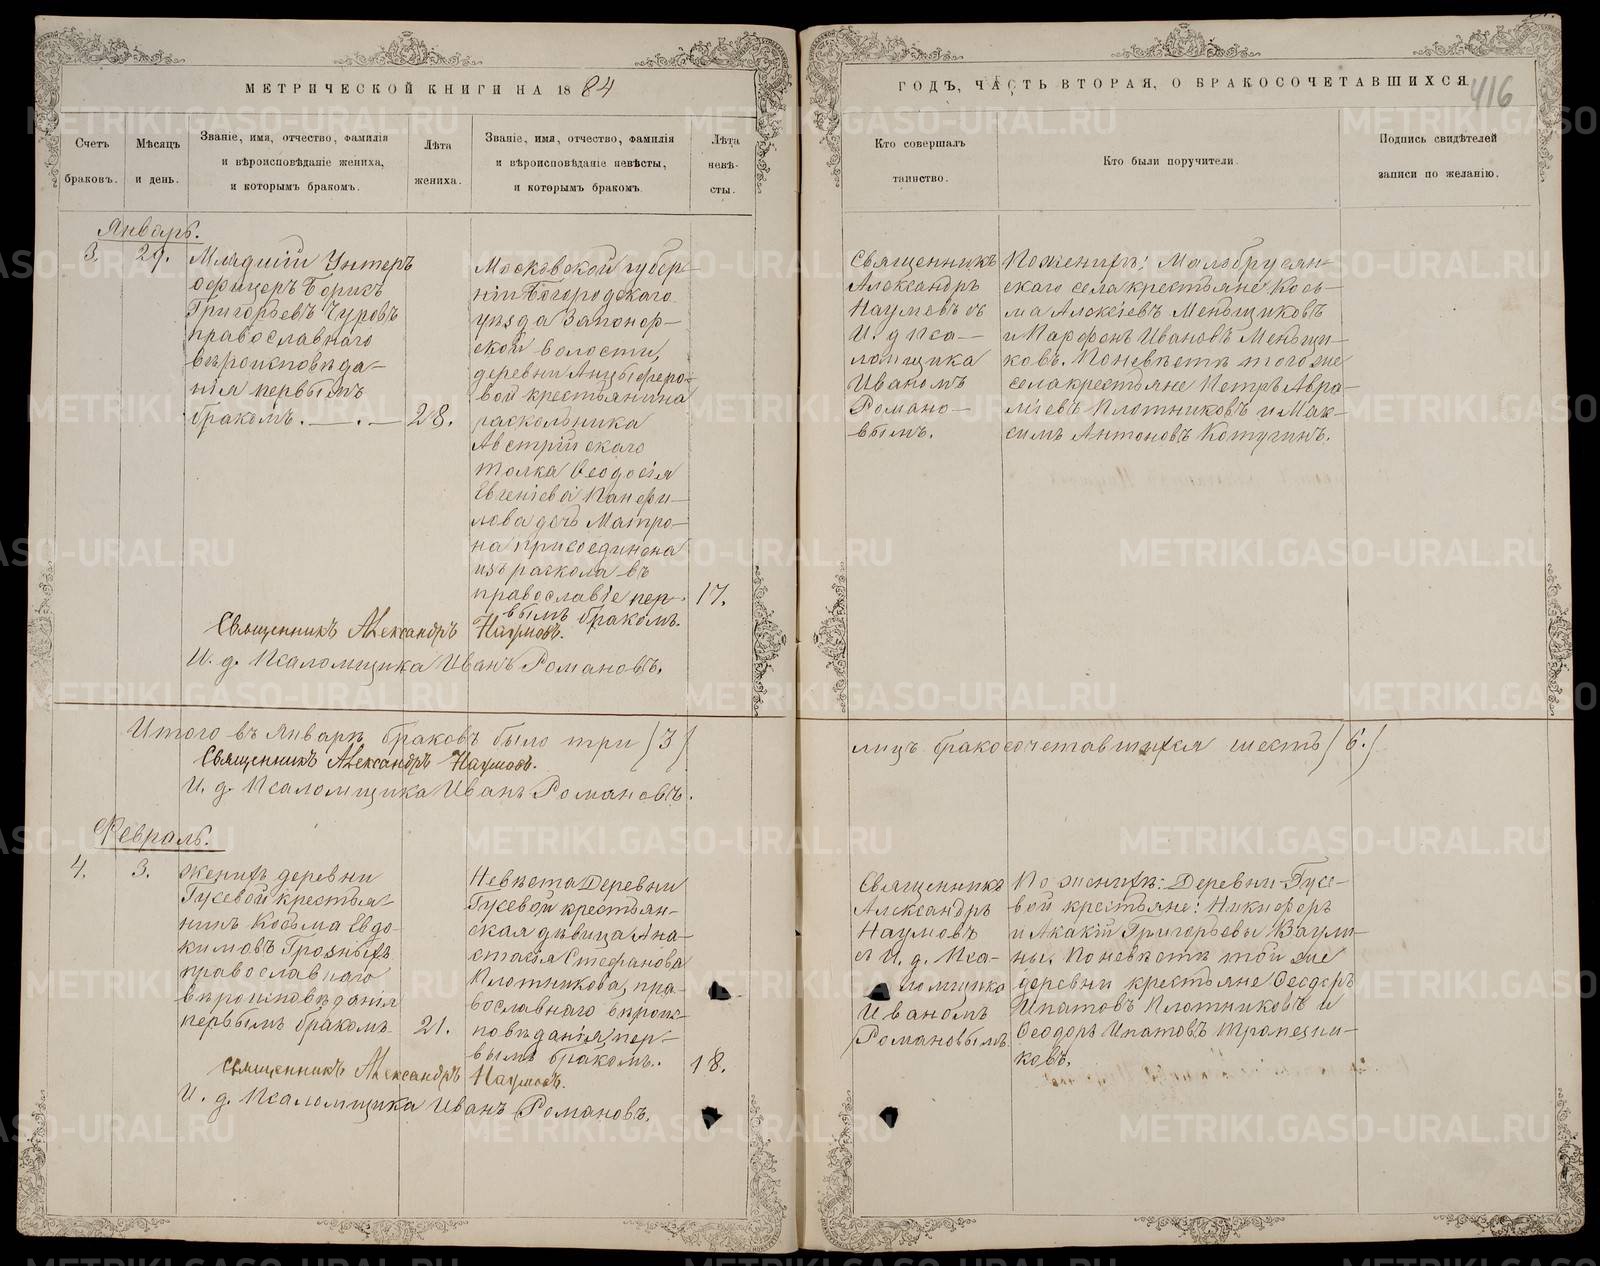 МЕТРИЧЕСКОЙ КНИГИ НА 1884
ГОДЪ, ЧАСТЬ ВТОРАЯ, О БРАКОСОЧЕТАВШИХСЯ
416
Счетъ браковъ.
Мѣсяцъ и день.
Званіе, имя, отчество, фамилія
и вѣроисповѣданіе жениха,
и которымъ бракомъ.
Лѣта жениха.
Званіе, имя, отчество, фамилія
и вѣроисповѣданіе невѣсты,
и которымъ бракомъ.
Лѣта невѣ-
сты.
Кто совершалъ
таинство.
Кто были поручители.
Подпись свидѣтелей
записи по желанію.
Январь.
3. 29.
Младшій Унтеръ
офицеръ Борисъ
Григорьевъ Чуровъ
православнаго
вѣроисповѣда-
нія первымъ
бракомъ. — . — 28.
Московской губер-
ніи Богородскаго
уѣзда Запонор-
ской волости,
деревни Анцыферо-
вой крестьянина
раскольника
Австрійскаго
толка Ѳеодосія
Евгеніева Панфи-
лова дочь Матро-
на присоединена
изъ раскола въ
православіе пер-
вымъ бракомъ.
17.
Священникъ
Александръ
Наумовъ съ
И. д. Пса-
ломщика
Иваномъ
Романо-
вымъ.
По женихѣ: Малобрусян-
скаго села крестьяне Кось-
ма Алексѣевъ Меньщиковъ
и Парфенъ Ивановъ Меньщи-
ковъ. По невѣстѣ того же
села крестьяне Петръ Авра-
міевъ Плотниковъ и Мак-
симъ Антоновъ Котугинъ.
Священникъ Александръ Наумовъ.
И. д. Псаломщика Иванъ Романовъ.
Итого въ Январѣ браковъ было три /3/
лицъ бракосочетавшихся шесть / 6. /
Священникъ Александръ Наумовъ.
И. д. Псаломщика Иванъ Романовъ.
Февраль.
4. 3.
Женихъ деревни
Гусевой крестья-
нинъ Косьма Евдо-
кимовъ Грозныхъ
православнаго
вѣроисповѣданія
первымъ бракомъ. 21.
Невѣста Деревни
Гусевой крестьян-
ская дѣвица Ана-
стасія Стефанова
Плотникова, пра-
вославнаго вѣроис-
повѣданія, пер-
вымъ бракомъ.
18.
Священникъ
Александръ
Наумовъ
съ И. д. Пса-
ломщика
Иваномъ
Романовымъ.
По женихѣ: Деревни Гусе-
вой крестьяне: Никифоръ
и Акакій Григорьевы Ваули-
ны. По невѣстѣ той же
деревни крестьяне Ѳеодоръ
Ипатовъ Плотниковъ и
Ѳеодоръ Ипатовъ Трапезни-
ковъ.
Священникъ Александръ Наумовъ.
И. д. Псаломщика Иванъ Романовъ.
METRIKI.GASO-URAL.RU